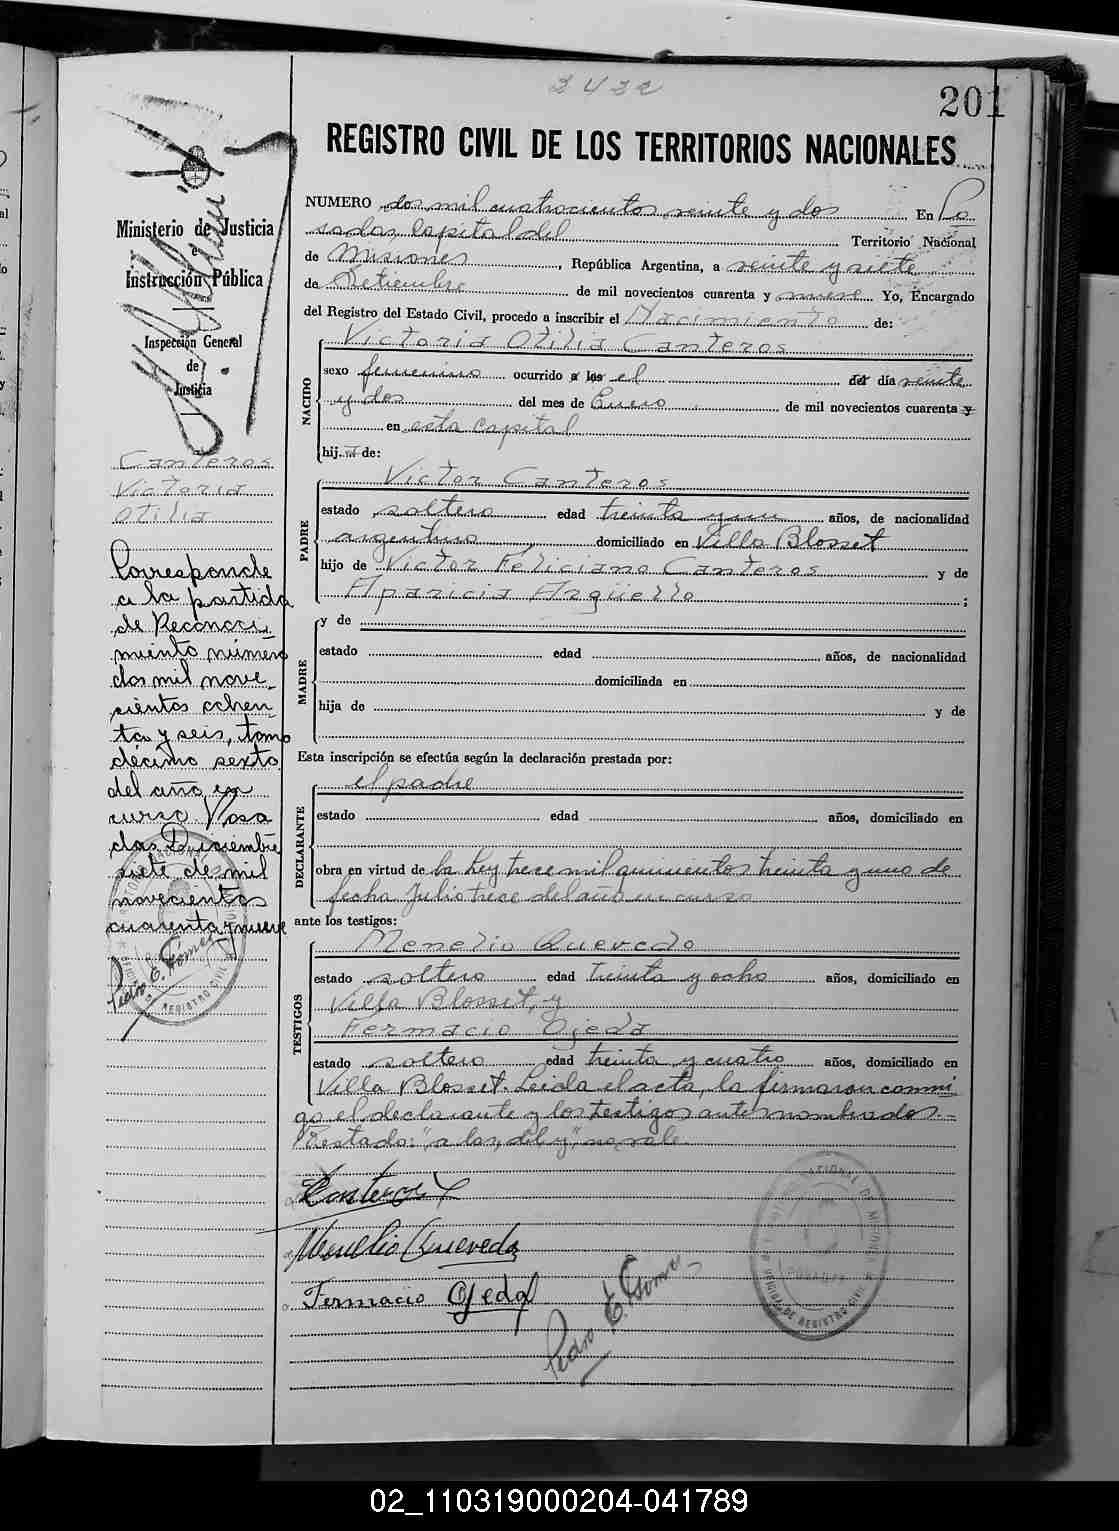 2422
201
REGISTRO CIVIL DE LOS TERRITORIOS NACIONALES
NUMERO dos mil cuatrocientos veinte y dos En Po
sadas, Capital del Territorio Nacional
de Misiones, República Argentina, a veinte y siete
de Setiembre de mil novecientos cuarenta y nueve Yo, Encargado
del Registro del Estado Civil, procedo a inscribir el Nacimiento de:
NACIDO
Victoria Otilia Canteros
sexo femenino ocurrido a las el del día veinte
y dos del mes de Enero de mil novecientos cuarenta y
en esta Capital
hij a de:
PADRE
Victor Canteros
estado soltero edad treinta y un años, de nacionalidad
argentino domiciliado en Villa Blosset
hijo de Victor Feliciano Canteros y de
Aparicia Argüello ;
MADRE
y de
estado edad años, de nacionalidad
domiciliada en
hija de y de
Esta inscripción se efectúa según la declaración prestada por:
DECLARANTE
el padre
estado edad años, domiciliado en
obra en virtud de la Ley trece mil quinientos treinta y uno de
fecha Julio trece del año en curso
ante los testigos:
TESTIGOS
Menelio Quevedo
estado soltero edad treinta y ocho años, domiciliado en
Villa Blosset, y
Fermacio Ojeda
estado soltero edad treinta y cuatro años, domiciliado en
Villa Blosset. Leida el acta, la firmaron conmi
go el declarante y los testigos antes nombrados.-
Testado: "a las, del y", no vale.
Canteros V
Menelio Quevedo
Fermacio Ojeda
Pedro E. Gomez
Ministerio de Justicia
e
Instrucción Pública
Inspección General
de
Justicia
Canteros
Victoria
Otilia
Corresponde
a la partida
de Reconoci
miento número
dos mil nove
cientos ochen
ta y seis, tomo
décimo sexto
del año en
curso. Posa
das Diciembre
siete de mil
novecientos
cuarenta y nueve
Pedro E. Gómez
OFICINA DE REGISTRO CIVIL
POSADAS
OFICINA DE REGISTRO CIVIL
02_110319000204-041789